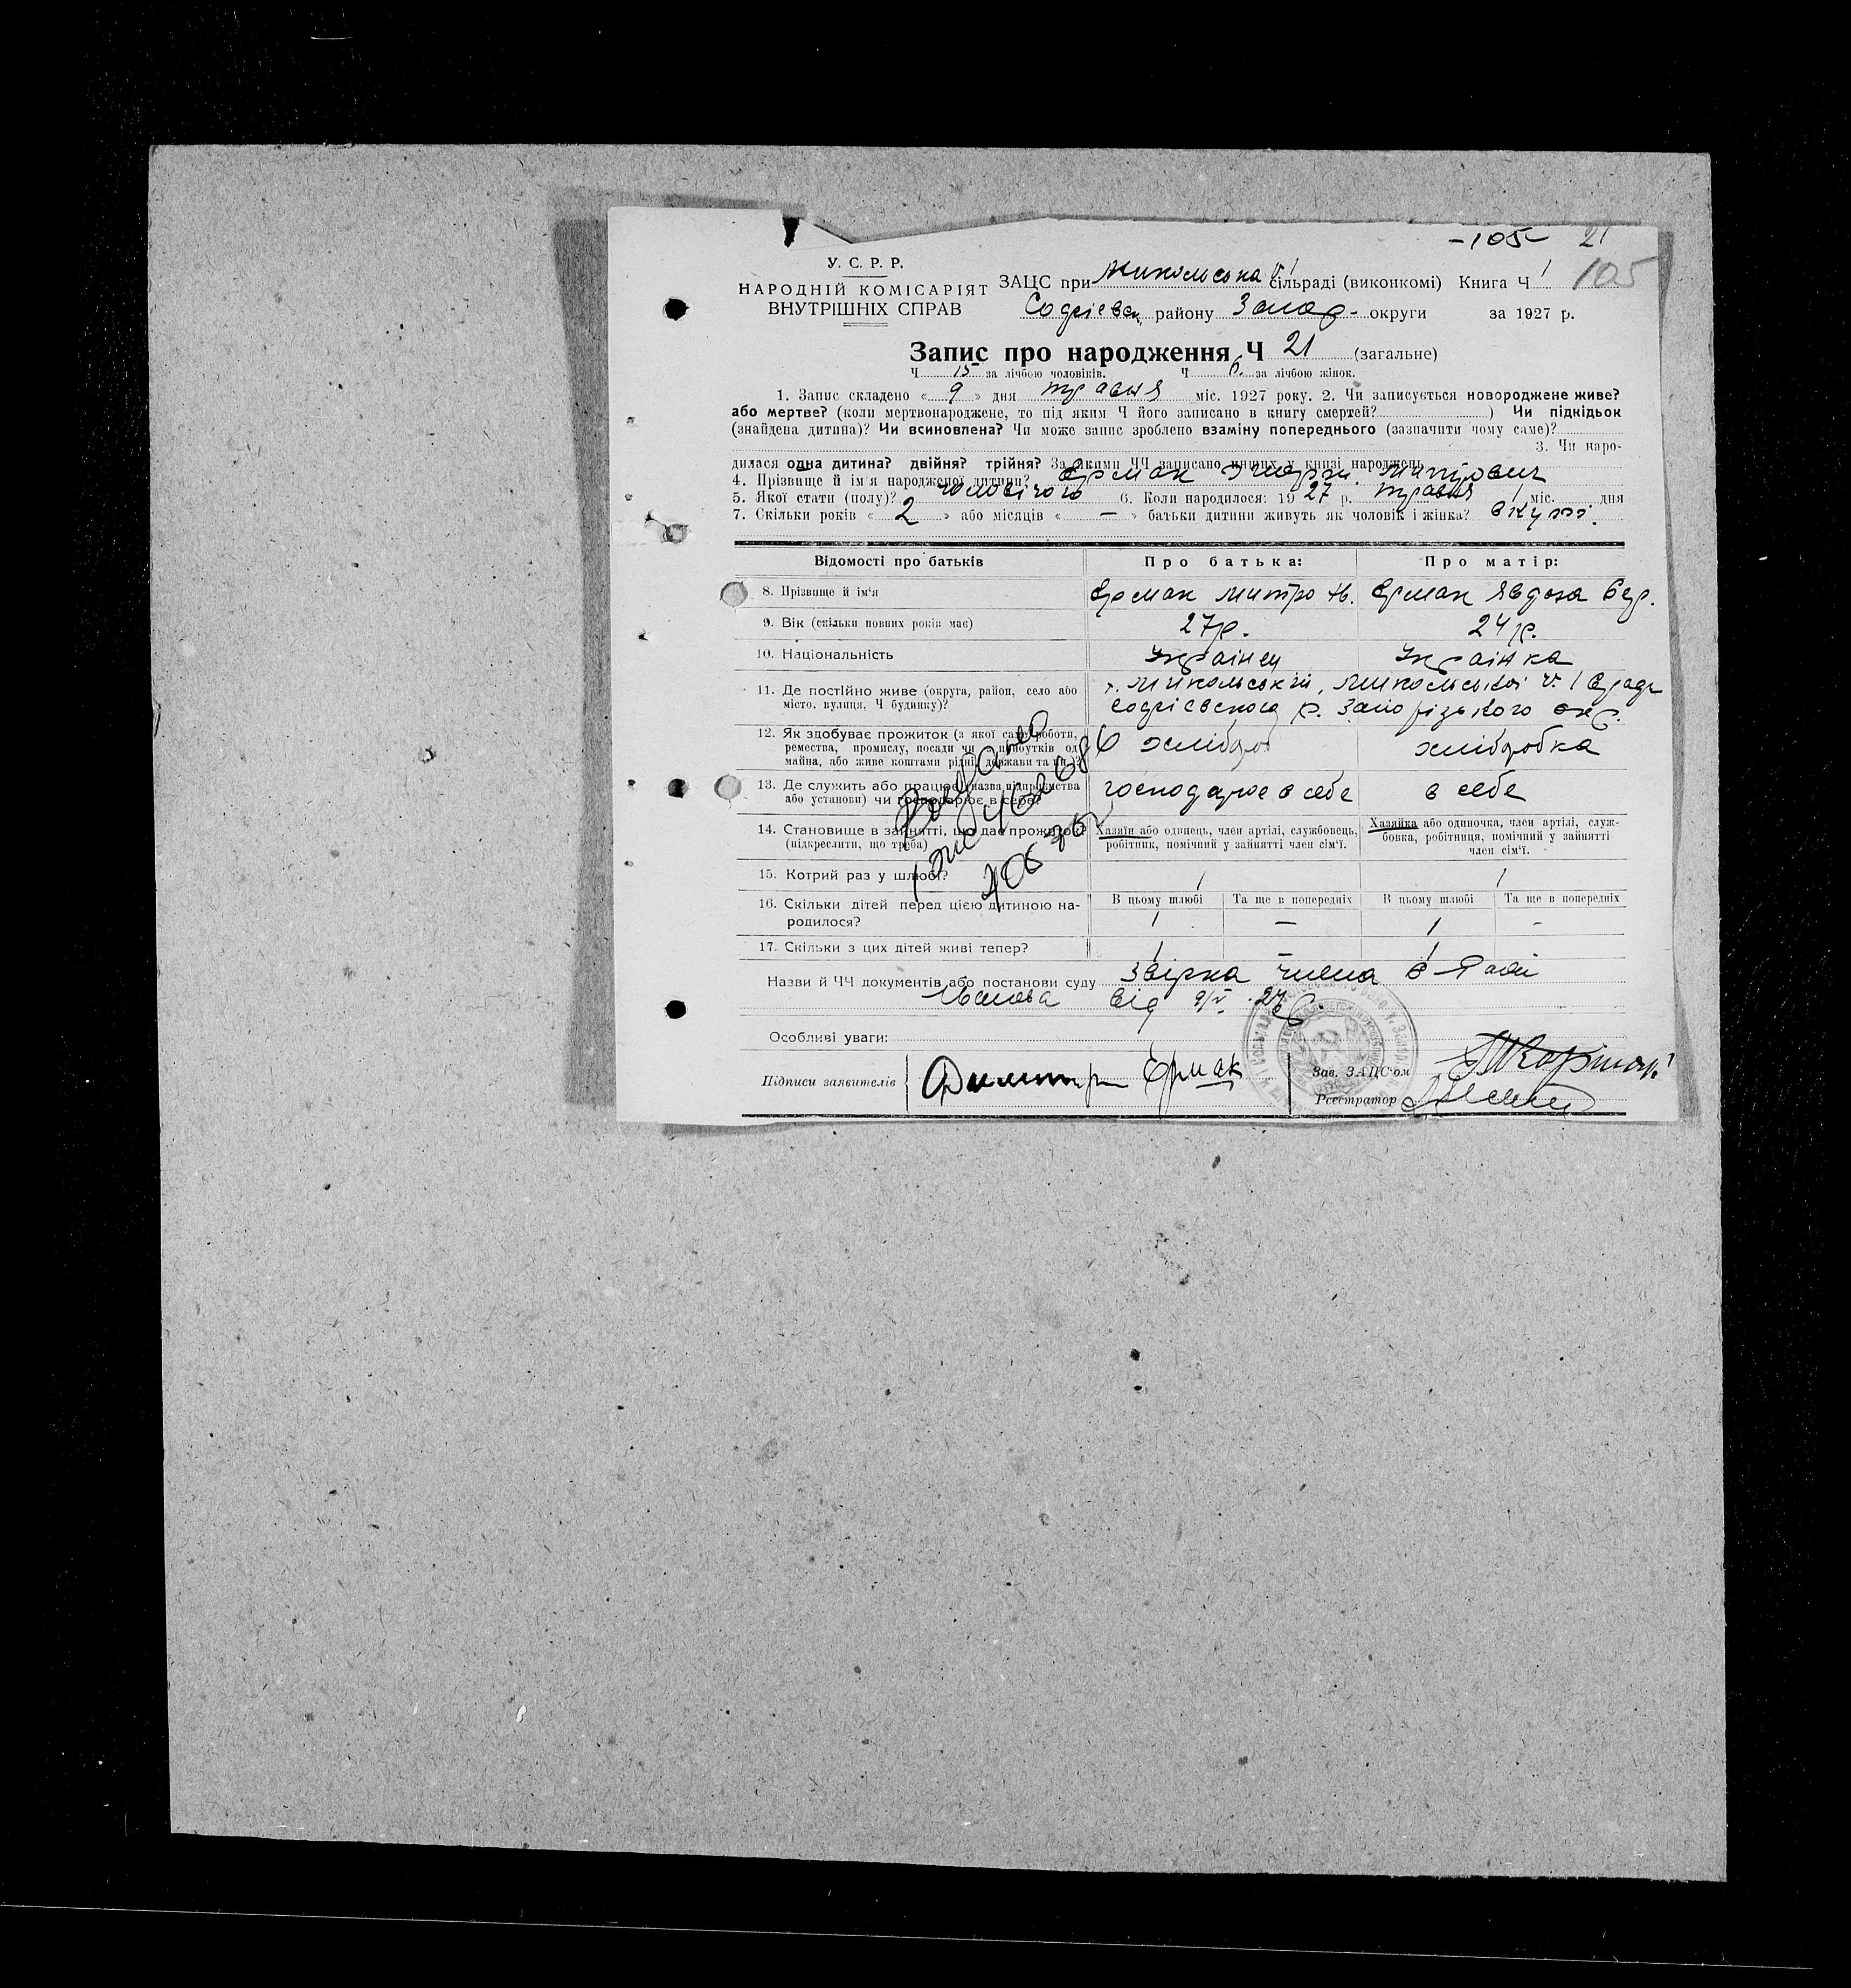 -105- 21
105
У. С. Р. Р.
НАРОДНІЙ КОМІСАРІЯТ
ВНУТРІШНІХ СПРАВ
ЗАЦС при Микольська Ч 1 сільраді (виконкомі) Книга Ч 1
Софіевск. району Запор. округи за 1927 р.
Запис про народження Ч 21 (загальне)
Ч 15 за лічбою чоловіків. Ч 6. за лічбою жінок.
1. Запис складено « 9 » дня травня міс. 1927 року. 2. Чи записується новороджене живе?
або мертве? (коли мертвонароджене, то під яким Ч його записано в книгу смертей? ) Чи підкідьок
(знайдена дитина)? Чи всиновлена? Чи може запис зроблено взаміну попереднього (зазначити чому саме)?
3. Чи наро-
дилася одна дитина? двійня? трійня? За якими ЧЧ записано инших у книзі народжень
4. Прізвище й ім'я народженої дитини? Ермак Митрович
5. Якої стати (полу)? чоловічого 6. Коли народилося: 1927 р. травня 1 міс. дня
7. Скільки років « 2 » або місяців « — » батьки дитини живуть як чоловік і жінка? вкупі.
Відомості про батьків Про батька: Про матір:
8. Прізвище й ім'я Ермак Митро Ів. Ермак Явдоха Фед.
9. Вік (скільки повних років має) 27 р. 24 р.
10. Національність Українец Українка
11. Де постійно живе (округа, район, село або
місто, вулиця, Ч будинку)?
х. Микольський, Микольської Ч 1 с/ради
Софіевского р. Запорізького окр.
12. Як здобуває прожиток (з якої саме роботи,
ремества, промислу, посади чи прибутків од
майна, або живе коштами рідні, держави та ин.)?
хлібороб хліборобка
13. Де служить або працює (назва підприємства
або установи) чи господарює в себе?
господарює в себе в себе
14. Становище в зайнятті, що дає прожиток?
(підкреслити, що треба)
Хазяїн або одинець, член артілі, службовець,
робітник, помічний у зайнятті член сім'ї.
Хазяйка або одиночка, член артілі, служ-
бовка, робітниця, помічний у зайнятті
член сім'ї.
15. Котрий раз у шлюбі? 1 1
16. Скільки дітей перед цією дитиною на-
родилося?
В цьому шлюбі Та ще в попередніх В цьому шлюбі Та ще в попередніх
1 — 1 -
17. Скільки з цих дітей живі тепер? 1 — 1
Назви й ЧЧ документів або постанови суду Звірка члена с-Ради
Іванова від 9/V 27 р.
Особливі уваги:
Підписи заявителів Димитр Ермак
Зав. ЗАЦС'ом
Реєстратор